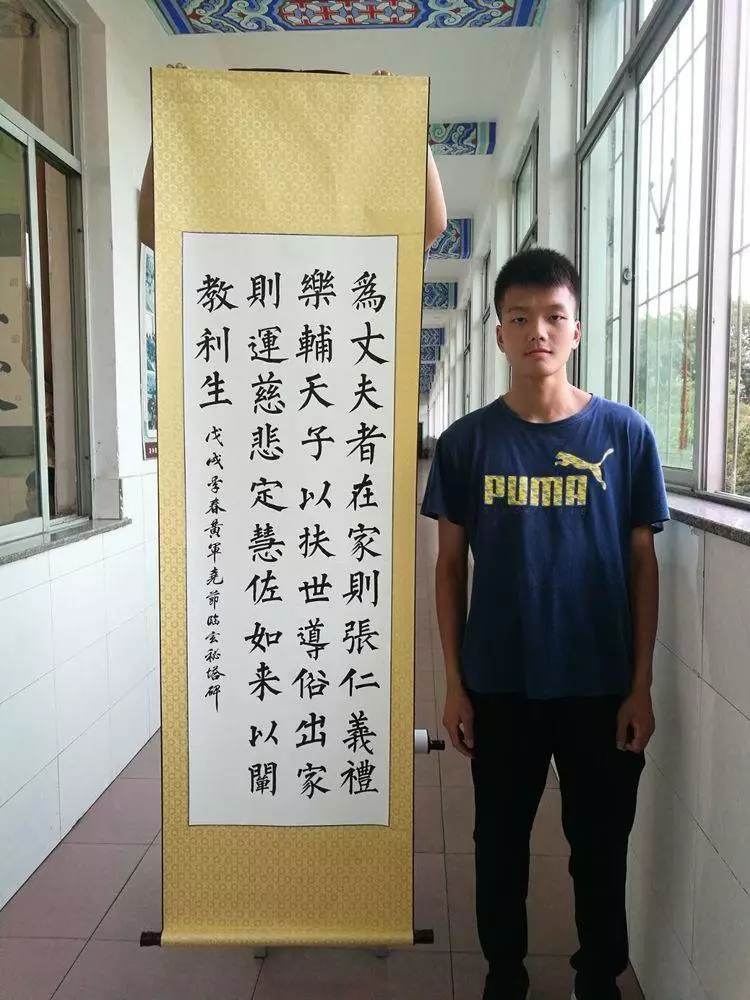 為丈夫者在家則張仁義禮
樂輔天子以扶世導俗出家
則運慈悲定慧佐如来以闡
教利生
戊戌季春黄軍堯節臨玄秘塔碑
PUMA